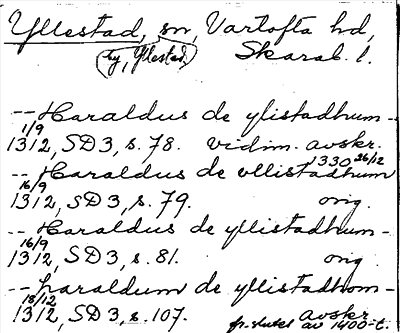 Yllestad, sn, Vartofta hd,
by, Yllestad Skarab. l.
-- Haraldus de ylistadhum -
1/9
1312, SD 3, s. 78. vidim. avskr.
1330 26/12
-- Haraldus de vllistadhum
16/9
1312, SD 3, s. 79. orig.
-- Haraldus de yllistadhum -
16/9
1312, SD 3, s. 81. orig.
-- haraldum de yllistadhom -
18/12
1312, SD 3, s. 107. fr. slutet avskr.
av 1400-t.